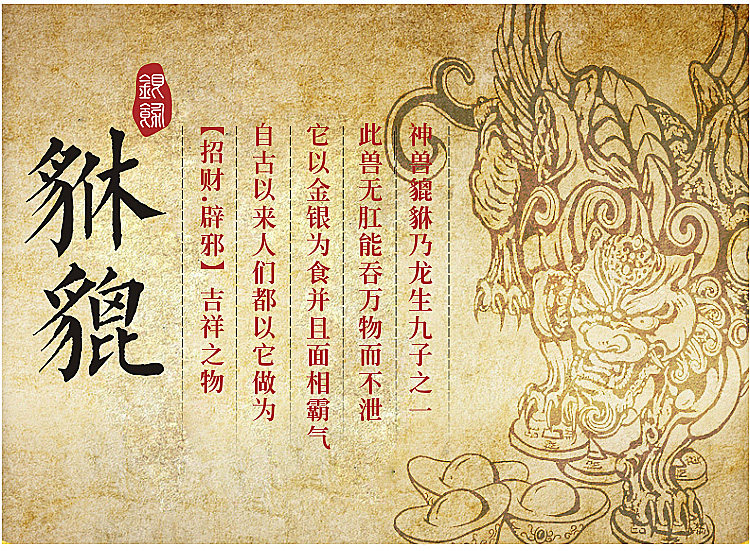 神兽貔貅乃龙生九子之一
此兽无肛能吞万物而不泄
它以金银为食并且面相霸气
自古以来人们都以它做为
【招财.辟邪】吉祥之物
貅貔